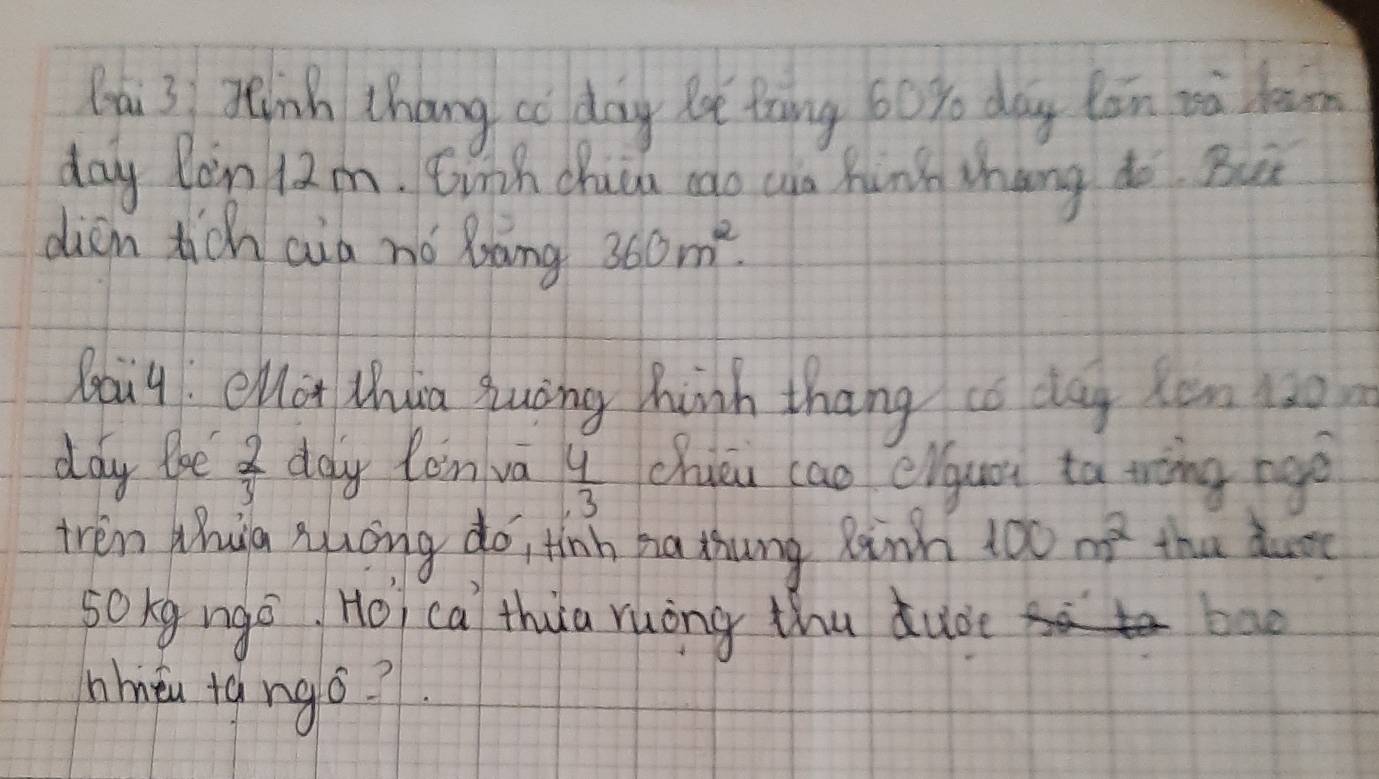 Bài 3: Hình thang có đáy bé bằng 60% đáy lớn và kém
đáy lớn 12 m. Tính chiều cao của hình thang đó. Biết
diện tích của nó bằng 360 m².
Bài 4: Một thửa ruộng hình thang có đáy lớn 120 m
đáy bé 2/3 đáy lớn và 4/3 chiều cao Người ta trồng ngô
trên thửa ruộng đó, tính ra trung bình 100 m² thu được
50 kg ngô. Hỏi cả thửa ruộng thu được bao
nhiêu tạ ngô?